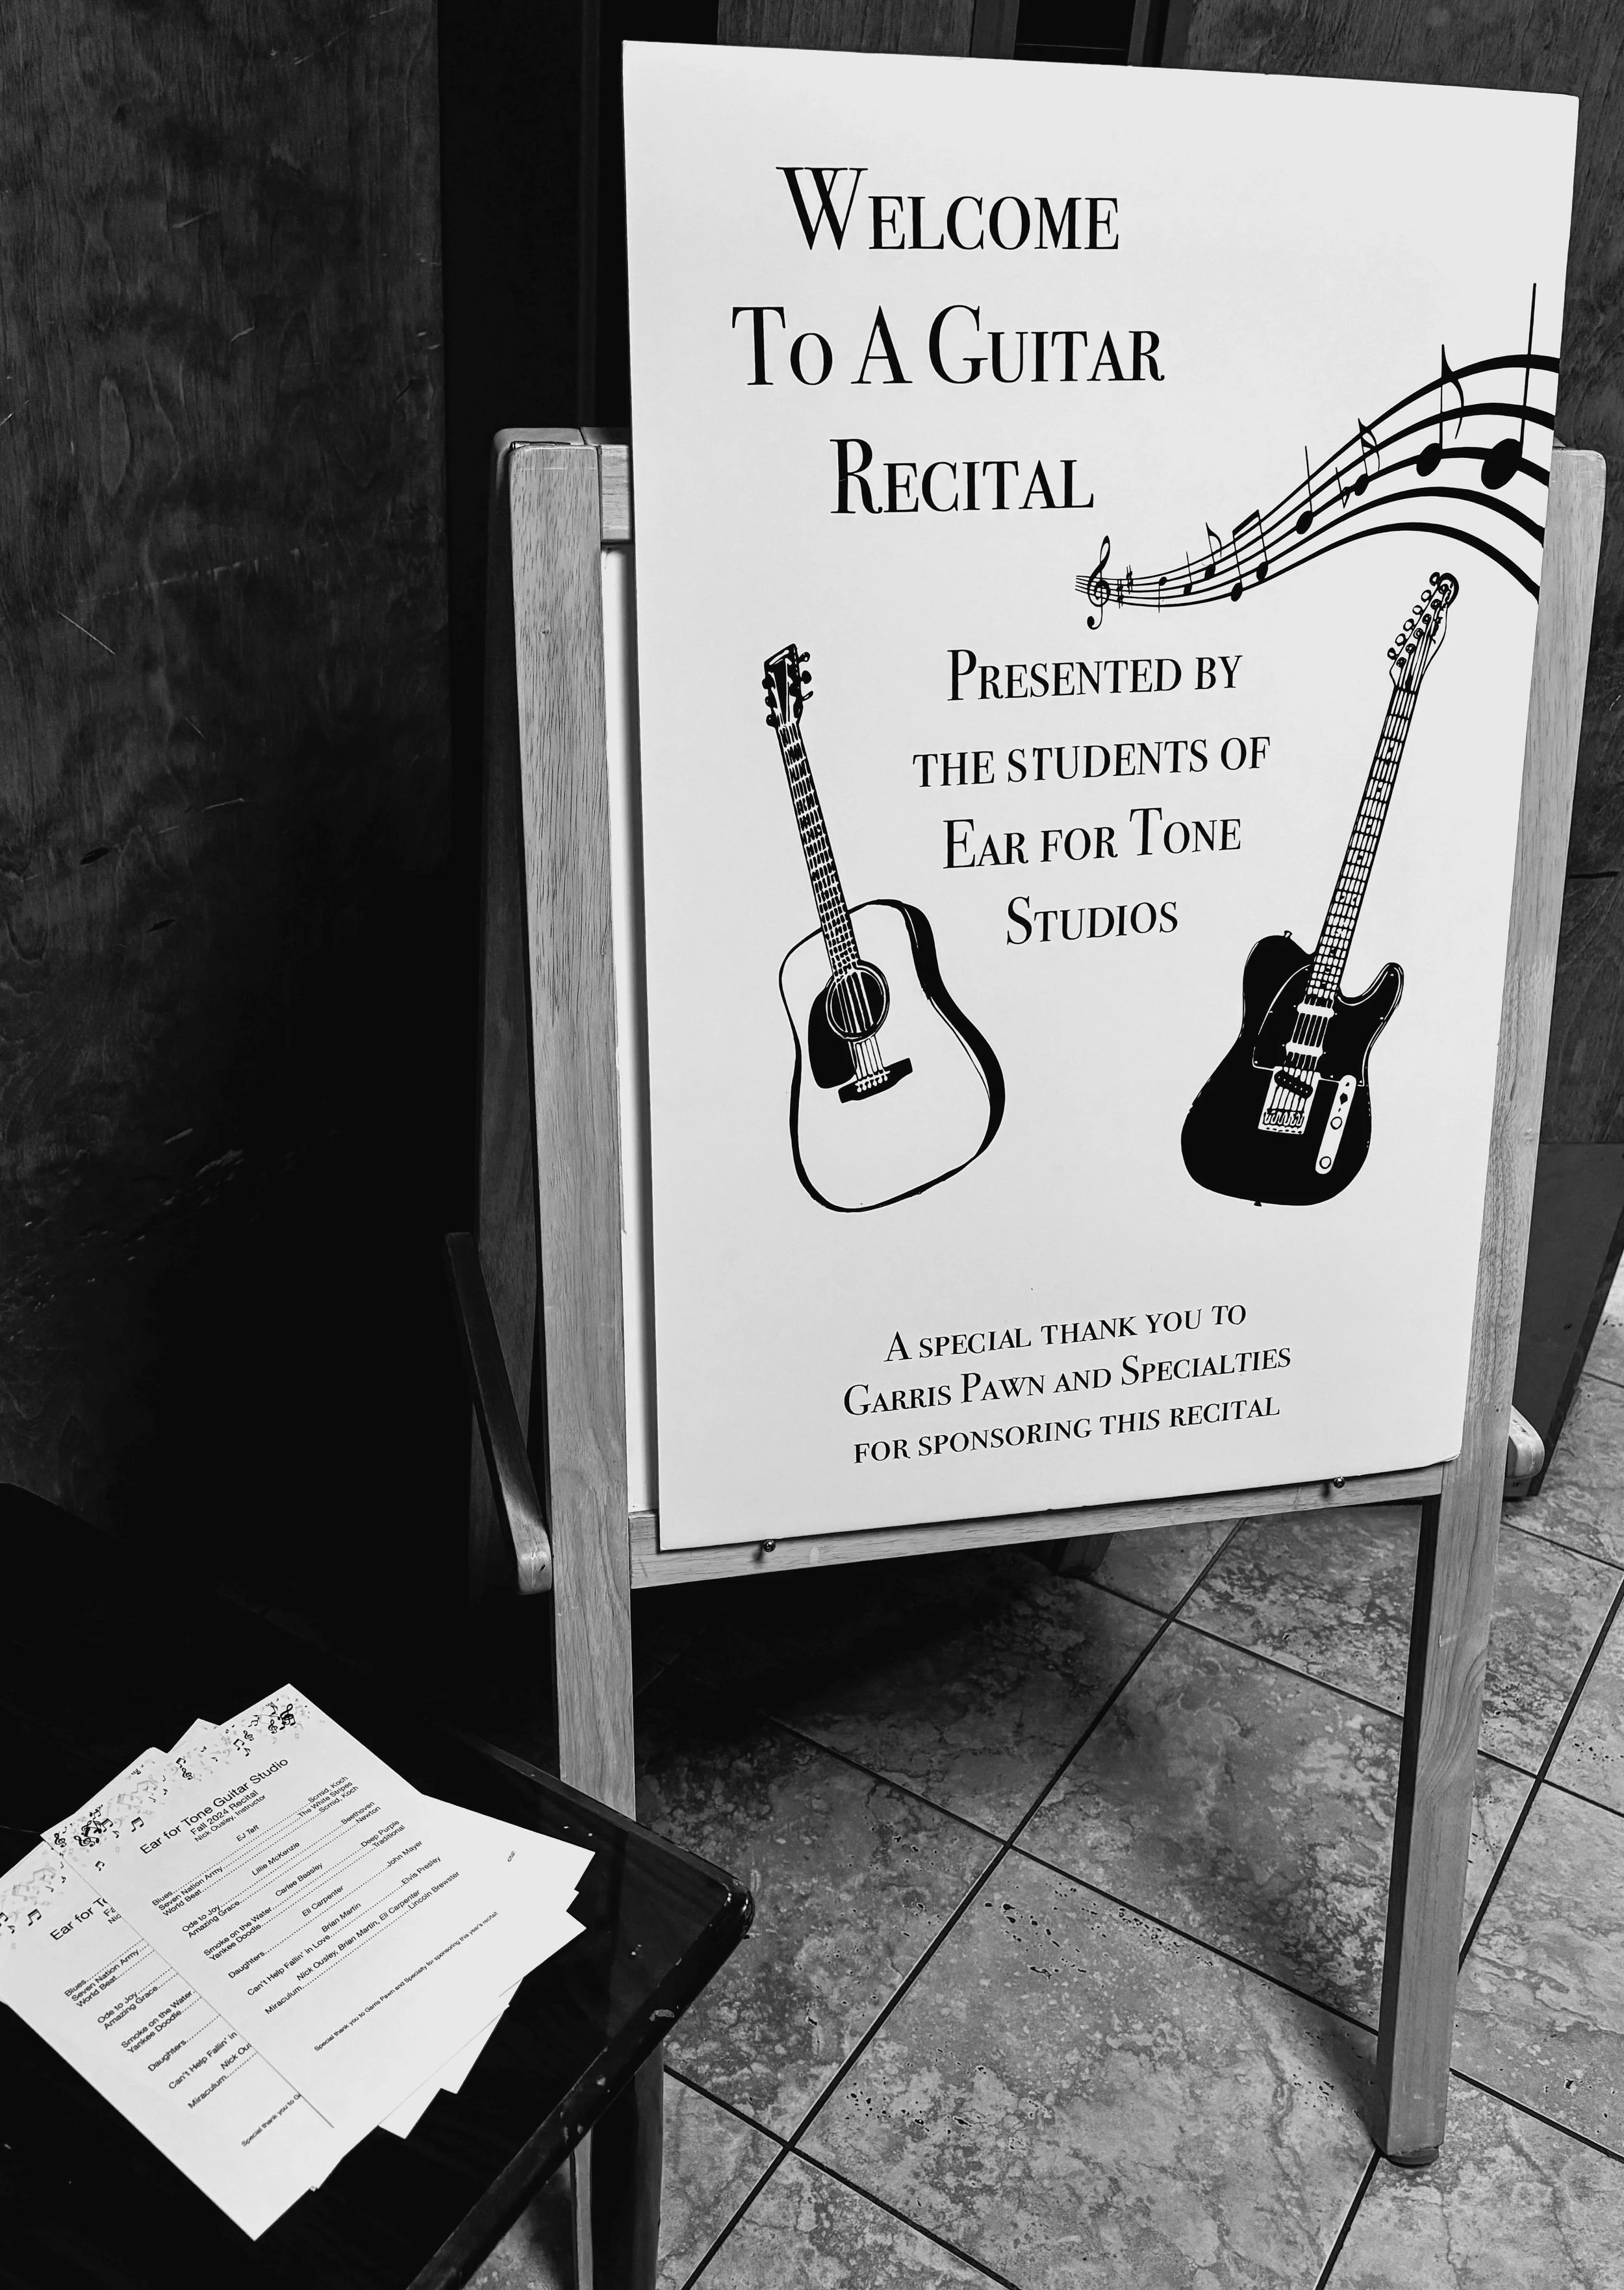 WELCOME
TO A GUITAR
RECITAL
PRESENTED BY
THE STUDENTS OF
EAR FOR TONE
STUDIOS
A SPECIAL THANK YOU TO
GARRIS PAWN AND SPECIALTIES
FOR SPONSORING THIS RECITAL
Ear for Tone Guitar Studio
Fall 2024 Recital
Nick Ousley, Instructor
EJ Taft
Blues Scmid, Koch
Seven Nation Army The White Stripes
World Beat Scmid, Koch
Lillie McKenzie
Ode to Joy Beethoven
Amazing Grace Newton
Carlee Beasley
Smoke on the Water Deep Purple
Yankee Doodle Traditional
Eli Carpenter
Daughters John Mayer
Brian Martin
Can't Help Fallin' in Love Elvis Presley
Nick Ousley, Brian Martin, Eli Carpenter
Miraculum Lincoln Brewster
Special thank you to Garris Pawn and Specialty for sponsoring this year's recital.
Ear for T
Nic
Blues
Seven Nation Army
World Beat
Ode to Joy
Amazing Grace
Smoke on the Water
Yankee Doodle
Daughters
Can't Help Fallin' in
Nick Ou
Miraculum
Special thank you to Ga